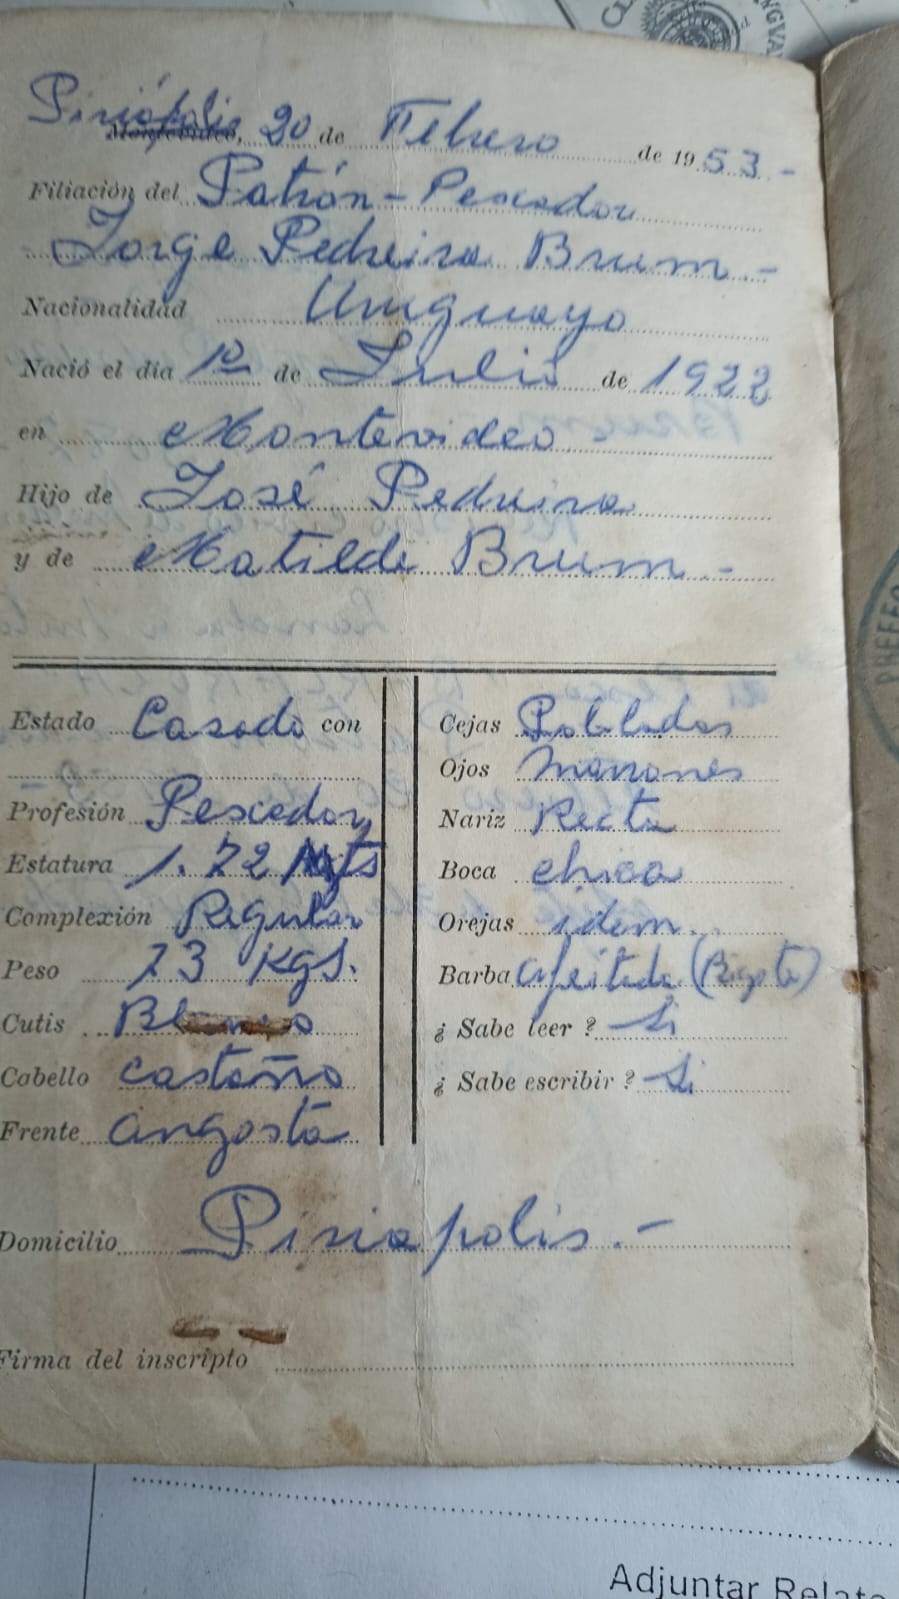 Piriápolis
Montevideo, 20 de Febrero de 1953.-
Filiación del Patrón - Pescador
Jorge Pedreira Brum.-
Nacionalidad Uruguayo
Nació el día 1º de Julio de 1922
en Montevideo
Hijo de José Pedreira
y de Matilde Brum.-
Estado Casado con
Profesión Pescador
Estatura 1.72 Mts
Complexión Regular
Peso 73 Kgs.
Cutis Blanco
Cabello castaño
Frente angosta
Cejas Pobladas
Ojos marrones
Nariz Recta
Boca chica
Orejas idem
Barba afeitada (Bigote)
¿ Sabe leer ? Si
¿ Sabe escribir ? Si
Domicilio Piriapolis.-
Firma del inscripto
Adjuntar Relato